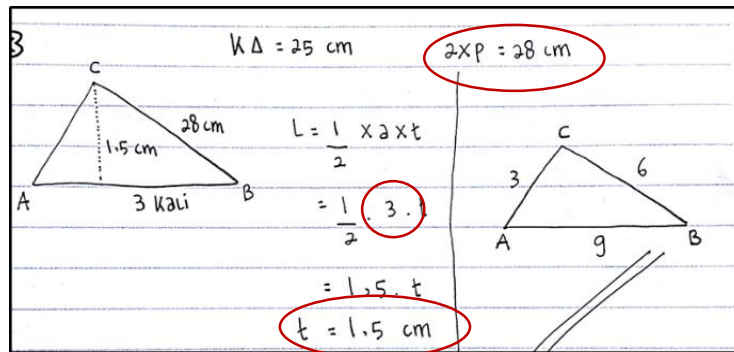 3
K∆ = 25 cm
2xp = 28 cm
C
28 cm
1,5 cm
A
3 Kali
B
L = 1/2 x a x t
= 1/2 . 3 . t
= 1,5 . t
t = 1,5 cm
C
3
6
A
B
9